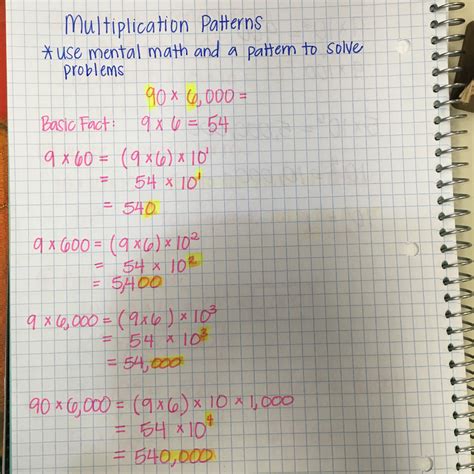 Multiplication Patterns
* use mental math and a pattern to solve
problems
90 × 6,000 =
Basic Fact: 9 × 6 = 54
9 × 60 = (9×6) × 10¹
= 54 × 10¹
= 540
9 × 600 = (9×6) × 10²
= 54 × 10²
= 5,400
9 × 6,000 = (9×6) × 10³
= 54 × 10³
= 54,000
90 × 6,000 = (9×6) × 10 × 1,000
= 54 × 10⁴
= 540,000